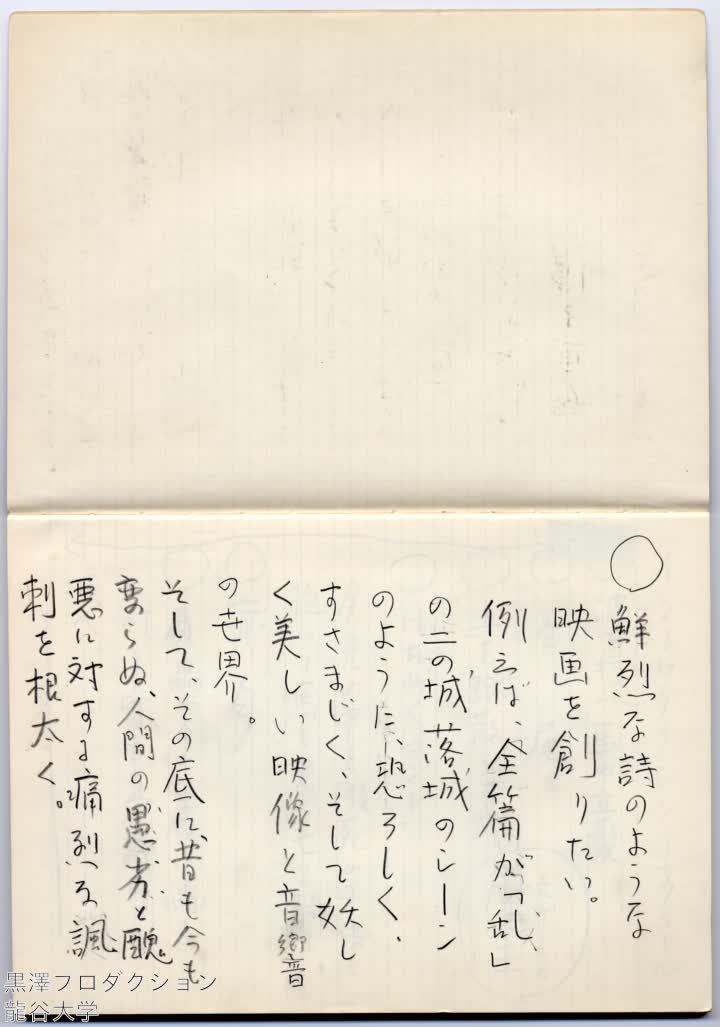 ○鮮烈な詩のような
映画を創りたい。
例えば、全篇が「乱」
の二の城、落城のシーン
のように、恐ろしく、
すさまじく、そして妖し
く美しい映像と音響
の世界。
そして、その底に、昔も今も
変らぬ、人間の愚劣と醜
悪に対する痛烈な諷
刺を根太く。
黒澤プロダクション
龍谷大学